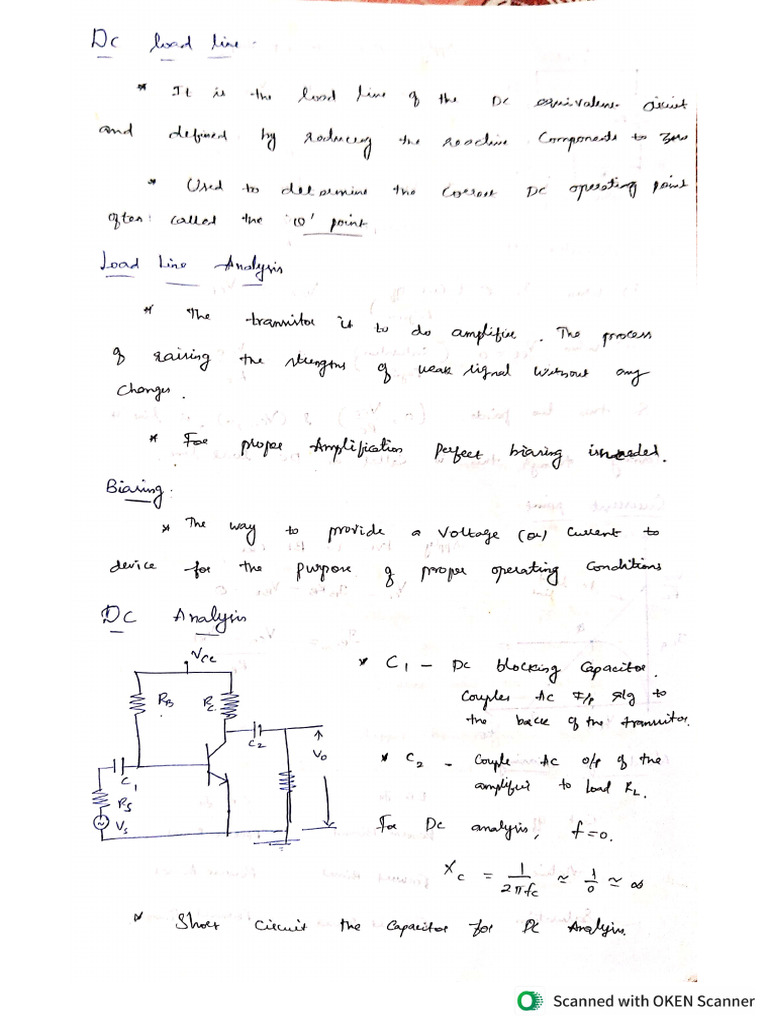 Dc load line.
* It is the load line of the Dc equivalent circuit
and defined by reducing the reactive Components to zero
* Used to determine the correct DC operating point
often called the 'Q' point
Load Line Analysis
* The transistor is to do amplifier. The process
of raising the strengths of weak signal without any
changes.
* For proper Amplification perfect biasing is needed.
Biasing.
* The way to provide a voltage (or) current to
device for the purpose of proper operating Conditions
DC Analysis
VCC
RB
RC
C2
C1
RS
VS
VO
* C1 - Dc blocking Capacitor.
Couples Ac I/p sig to
the base of the transistor.
* C2 - Couple Ac o/p of the
amplifier to load RL.
For Dc analysis, f=0.
XC = 1/2πfc ≃ 1/0 ≃ ∞
* Short circuit the Capacitor for DC Analysis.
Scanned with OKEN Scanner